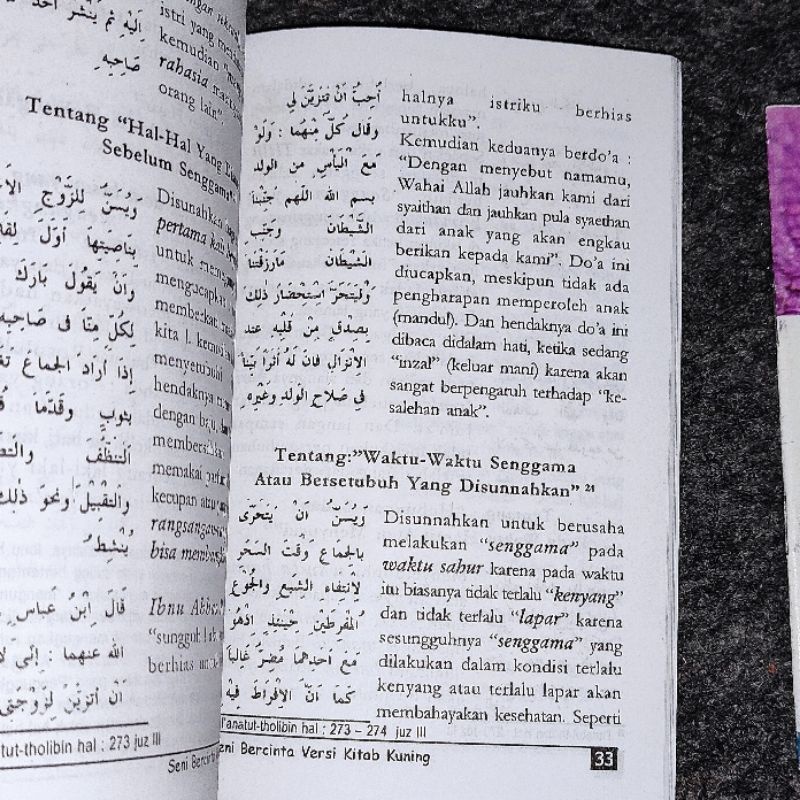 اِلَيْهِ ثُمَّ يَنْشُرُ
صَاحِبِهِ
istri yang
kemudian
rahasia
orang lain".
Tentang "Hal-Hal Yang
Sebelum Senggama
وَيُسَنُّ لِلزَّوْجِ
بِنَاصِيَتِهَا أَوَّلَ
وَأَنْ يَقُولَ بَارَكَ
لِكُلٍّ مِنَّا فِى صَاحِبِهِ
إِذَا أَرَادَ الْجِمَاعَ
بِثَوْبٍ وَقَدَّمَا
التَّنَظُّفَ
وَالتَّقْبِيْلَ وَنَحْوَ ذٰلِكَ
يُنْشِطُ
قَالَ ابْنُ عَبَّاسٍ
اللهُ عَنْهُمَا : إِنِّى
أَنْ أَتَزَيَّنَ لِزَوْجَتِى
Disunahkan
pertama
untuk
mengucapkan
kita
menyetubuhi
hendaknya
dengan
memakai
kecupan atau
rangsangan
Ibnu
berhias
tut-tholibin hal : 273 juz III
أُحِبُّ أَنْ تَتَزَيَّنَ لِى
وَقَالَ كُلٌّ مِنْهُمَا : وَلَوْ
مَعَ الْيَأْسِ مِنَ الْوَلَدِ
بِسْمِ اللهِ اللّٰهُمَّ جَنِّبْنَا
الشَّيْطَانَ وَجَنِّبِ
الشَّيْطَانَ مَارَزَقْتَنَا
وَلْيَتَحَرَّ اسْتِحْضَارَ ذٰلِكَ
بِصِدْقٍ مِنْ قَلْبِهِ عِنْدَ
الْاِنْزَالِ فَاِنَّ لَهُ اَثَرًا بَيِّنًا
فِى صَلَاحِ الْوَلَدِ وَغَيْرِهِ
halnya istriku berhias
untukku".
Kemudian keduanya berdo'a :
"Dengan menyebut namamu,
Wahai Allah jauhkan kami dari
syaithan dan jauhkan pula syaethan
dari anak yang akan engkau
berikan kepada kami". Do'a ini
diucapkan, meskipun tidak ada
pengharapan memperoleh anak
(mandul). Dan hendaknya do'a ini
dibaca didalam hati, ketika sedang
"inzal" (keluar mani) karena akan
sangat berpengaruh terhadap "ke-
salehan anak".
Tentang:"Waktu-Waktu Senggama
Atau Bersetubuh Yang Disunnahkan" 24
وَيُسَنُّ أَنْ يَتَحَرَّى
بِالْجِمَاعِ وَقْتَ السَّحَرِ
لِاِنْتِفَاءِ الشَّبَعِ وَالْجُوْعِ
الْمُفْرِطَيْنِ حِيْنَئِذٍ اِذْ هُوَ
مَعَ اَحَدِهِمَا مُضِرٌّ غَالِبًا
كَمَا اَنَّ الْاِفْرَاطَ فِيْهِ
Disunnahkan untuk berusaha
melakukan "senggama" pada
waktu sahur karena pada waktu
itu biasanya tidak terlalu "kenyang"
dan tidak terlalu "lapar" karena
sesungguhnya "senggama" yang
dilakukan dalam kondisi terlalu
kenyang atau terlalu lapar akan
membahayakan kesehatan. Seperti
I'anatut-tholibin hal : 273 – 274 juz III
Seni Bercinta Versi Kitab Kuning 33